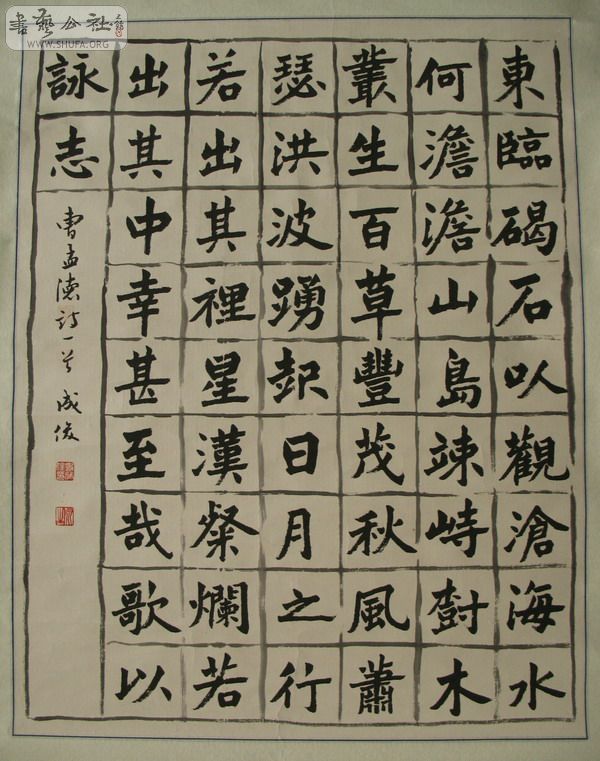 東臨碣石以觀滄海水
何澹澹山島竦峙樹木
叢生百草豐茂秋風蕭
瑟洪波踴起日月之行
若出其裡星漢粲爛若
出其中幸甚至哉歌以
詠志
曹孟德詩一首 成俊
書藝公社
WWW.SHUFA.ORG